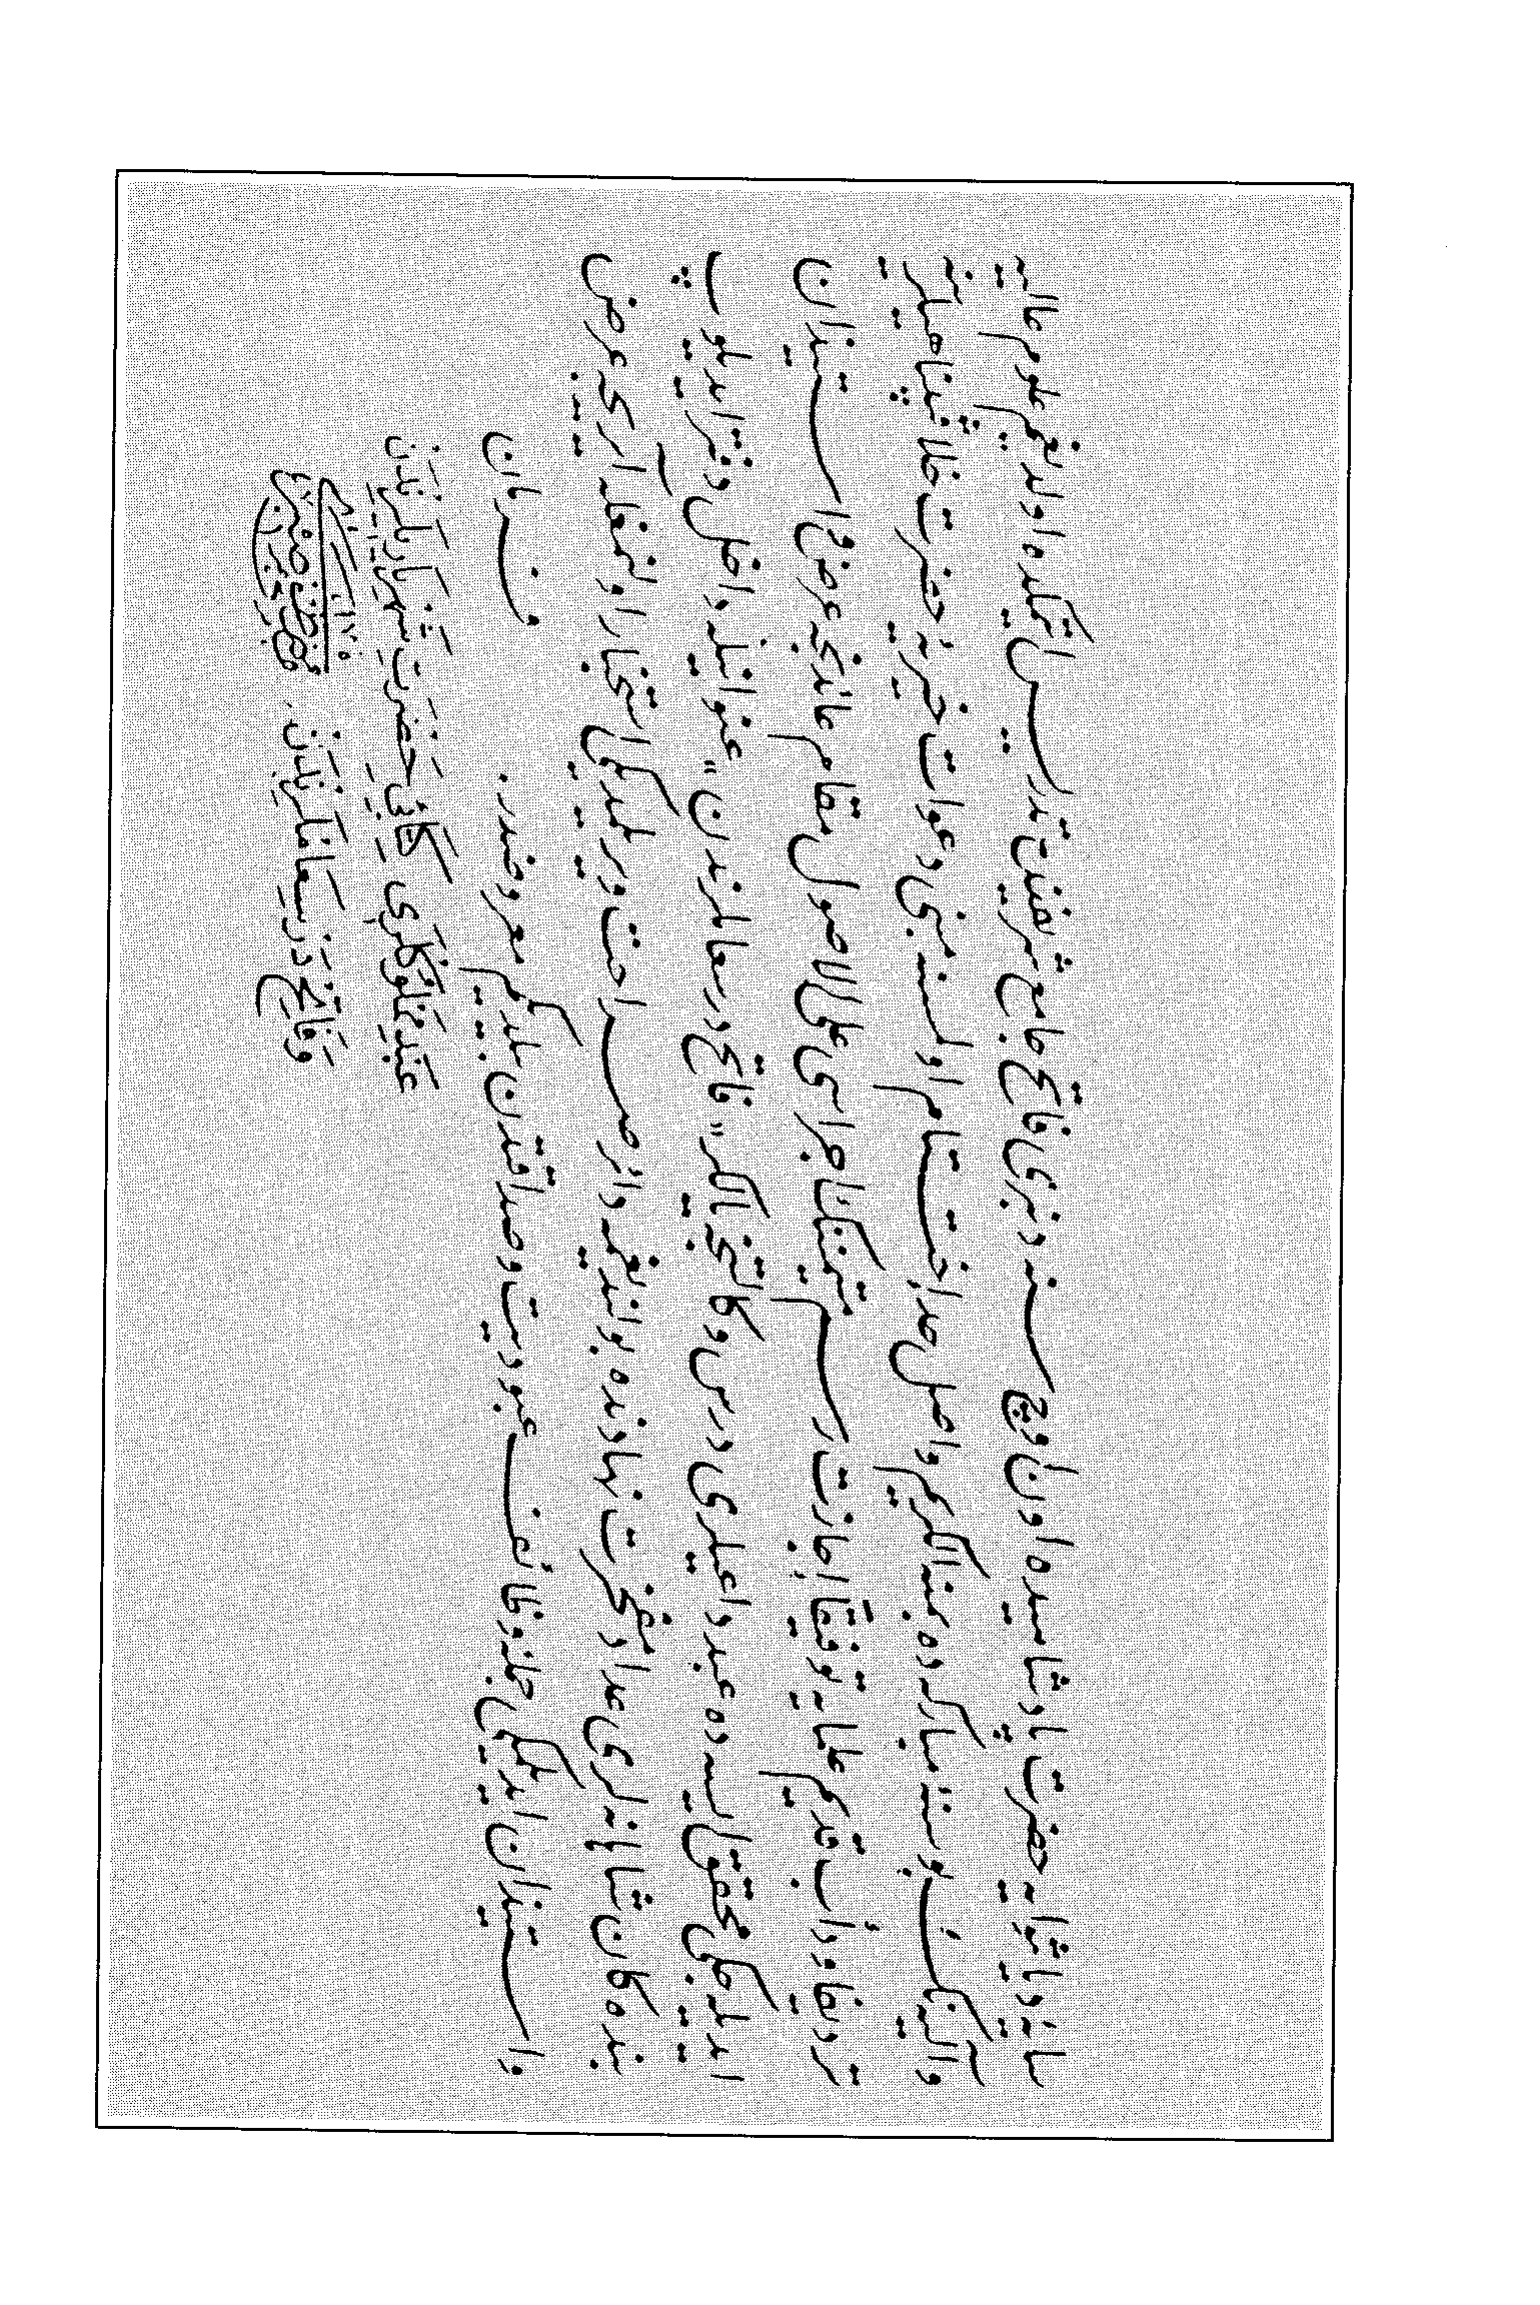 سایهٔ حضرت پادشاهیده اون اوچ سنه دنبری فاتح جامع شریفنده تدریس ایتمکده اولدیغم علوم عالیه
وآلیه‌نك بوسنهٔ مبارکه‌ده بمنه الکریم واصل حد اختتام اولمسنه مبنی دعوات خیریهٔ حضرت خلافتپناهیلرینه
تردیفا ودأب قدیم علمایه توفیقا اجازت رسمنك اجراسی علی الاصول مقام عائدینجه عرض و استیذان
ایدیله‌جکی محقق ایسه‌ده عبد داعیلری درس وکالتنجه الکز «فاتح درسعاملرندن» عنوانیله داخل دفتر ایدیلوب
بنده‌کان شاهانه‌لری عداد مفخرت نهادنده بولندیغمه دائر صراحت ویرلمدیکی استخبار اولنمغله آیریجه عرض
واستیذان ایدیلمکی جملهٔ وظائف عبودیت وصداقتدن بیلدیکم معروضدر. فرمان
عبد مملوکلری حضرت شهریاریلرندن
وفاتح درسعاملرندن مصطفی صبری